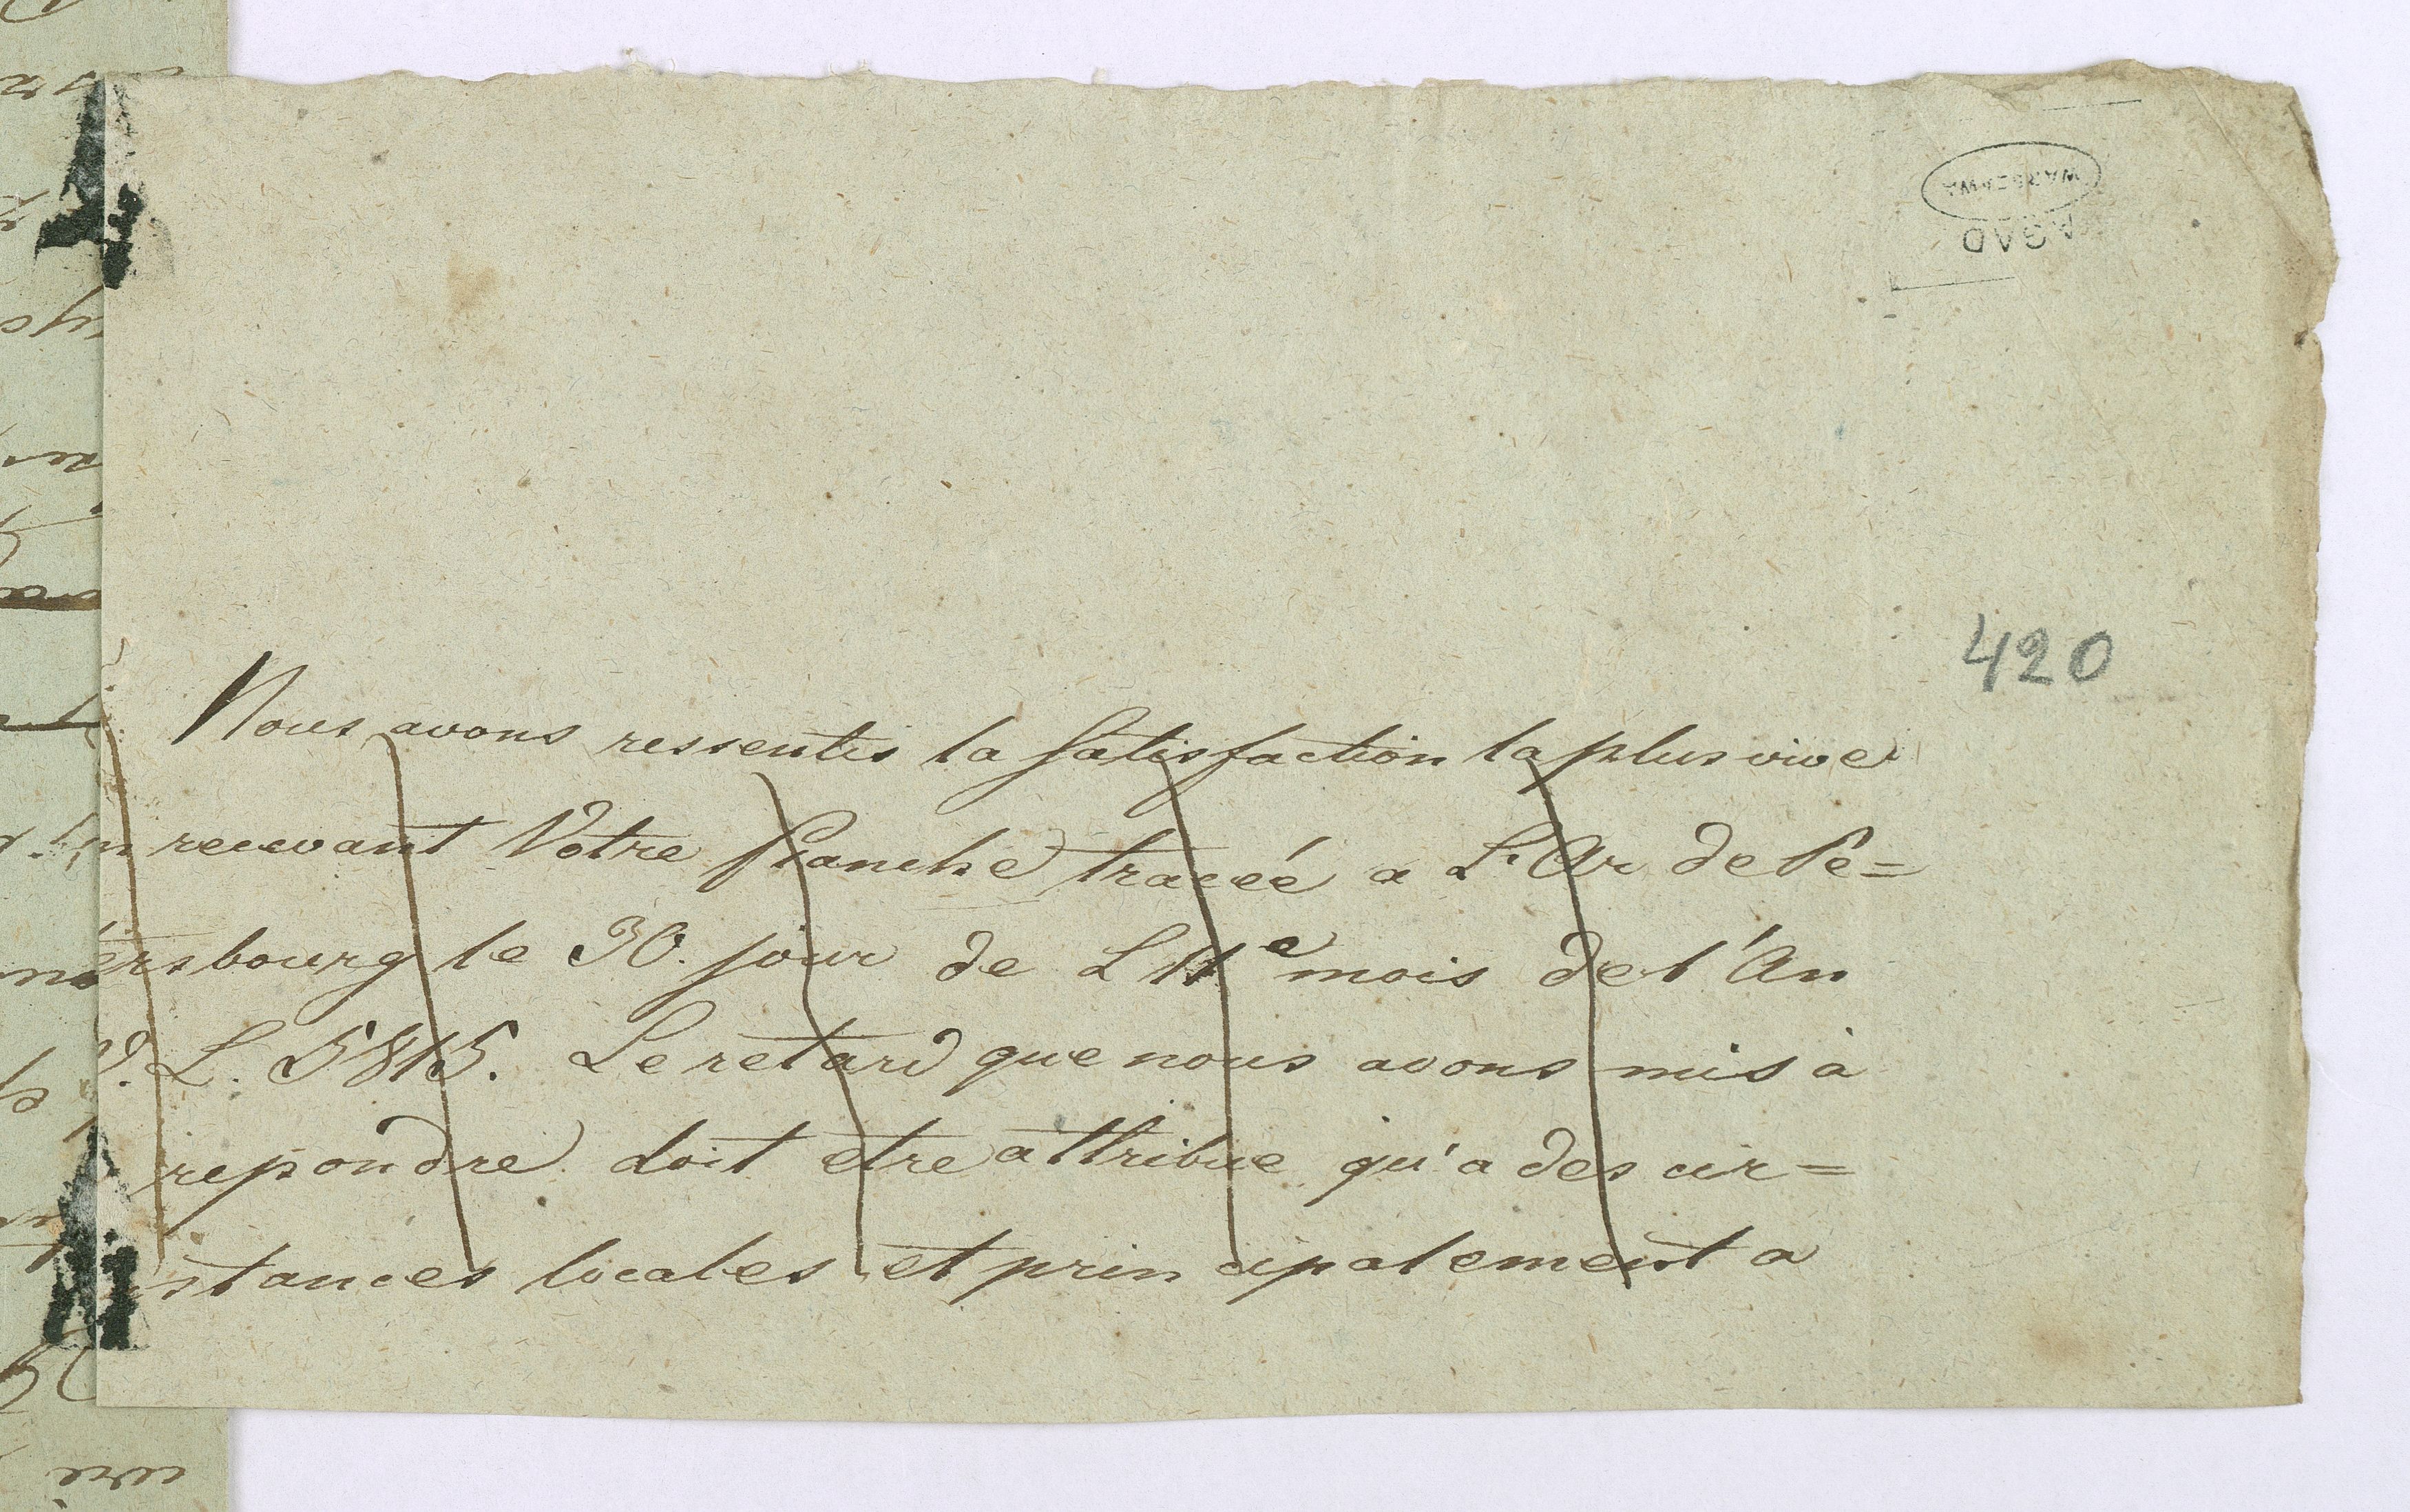 WARSZAWA
AGAD
420
Nous avons ressentis la satisfaction la plus vive
en recevant Votre planche tracéé a L'Or de Pe=
tersbourg le 30. jour de L 11e mois de l'An
V. L. 5815. Le retard que nous avons mis à
repondre doit etre attribue qu'a des cir=
stances locales et principalement a